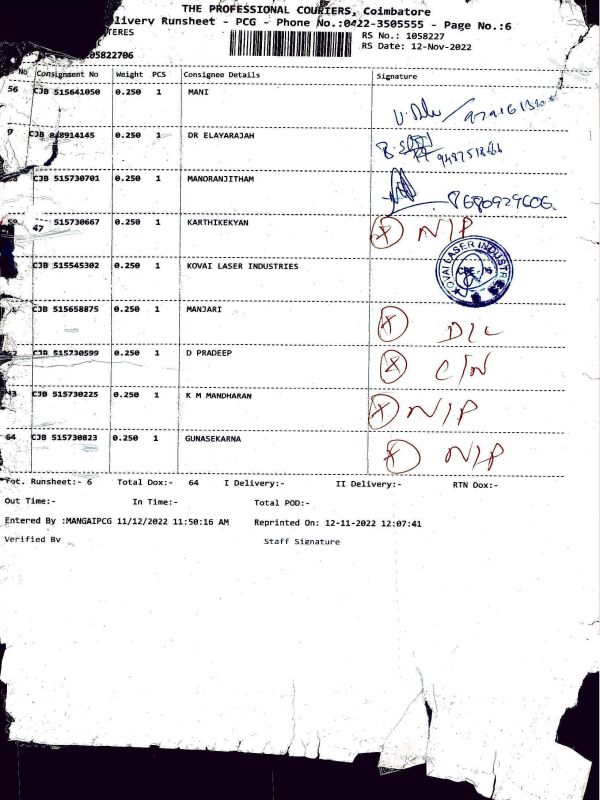 THE PROFESSIONAL COURIERS, Coimbatore
Delivery Runsheet - PCG - Phone No.:0422-3505555 - Page No.:6
RS No.: 1058227
RS Date: 12-Nov-2022
No Consignment No Weight PCS Consignee Details Signature
56 CJB 515641050 0.250 1 MANI
CJB 848914145 0.250 1 DR ELAYARAJAH
CJB 515730701 0.250 1 MANORANJITHAM 8680929606
47 515730667 0.250 1 KARTHIKEKYAN X N/P
CJB 515545302 0.250 1 KOVAI LASER INDUSTRIES
KOVAI LASER INDUSTRIES
CJB 515658875 0.250 1 MANJARI X D/L
CJB 515730599 0.250 1 D PRADEEP X C/N
CJB 515730225 0.250 1 K M MANDHARAN X N/P
64 CJB 515730823 0.250 1 GUNASEKARNA X N/P
Tot. Runsheet:- 6 Total Dox:- 64 I Delivery:- II Delivery:- RTN Dox:-
Out Time:- In Time:- Total POD:-
Entered By :MANGAIPCG 11/12/2022 11:50:16 AM Reprinted On: 12-11-2022 12:07:41
Verified By Staff Signature